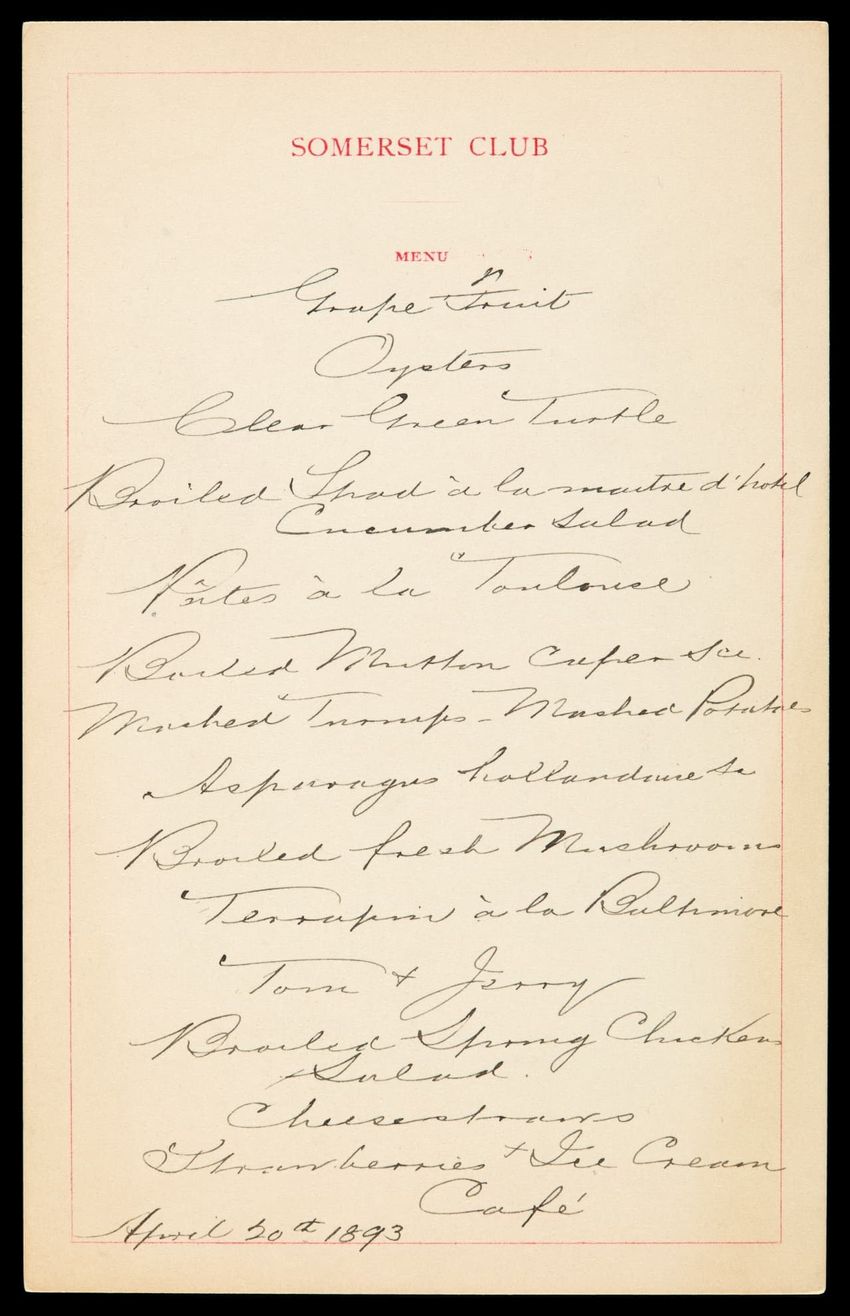 SOMERSET CLUB
MENU
Grape Fruit
Oysters
Clear Green Turtle
Broiled Shad à la maitre d'hotel
Cucumber Salad
à la Toulouse
Boiled Mutton Caper Sce.
Mashed Turnips - Mashed Potatoes
Asparagus hollandaise
Broiled fresh Mushrooms
Terrapin à la Baltimore
Tom + Jerry
Broiled Spring Chicken
Salad.
Cheesestraws
Strawberries + Ice Cream
Café
April 20th 1893